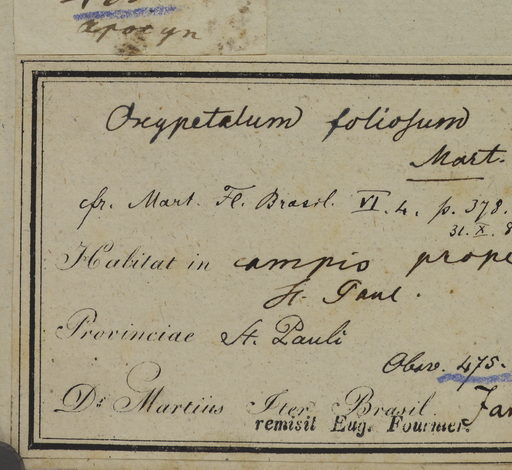 apocyn
Oxypetalum foliosum
Mart.
cfr. Mart. Fl. Brasil. VI. 4. p. 378.
31. X. 8
Habitat in campis prope
St. Paul.
Provinciae St. Pauli
Obsv. 475.
Dr Martius Iter Brasil. Jan
remisit Eug. Fournier.